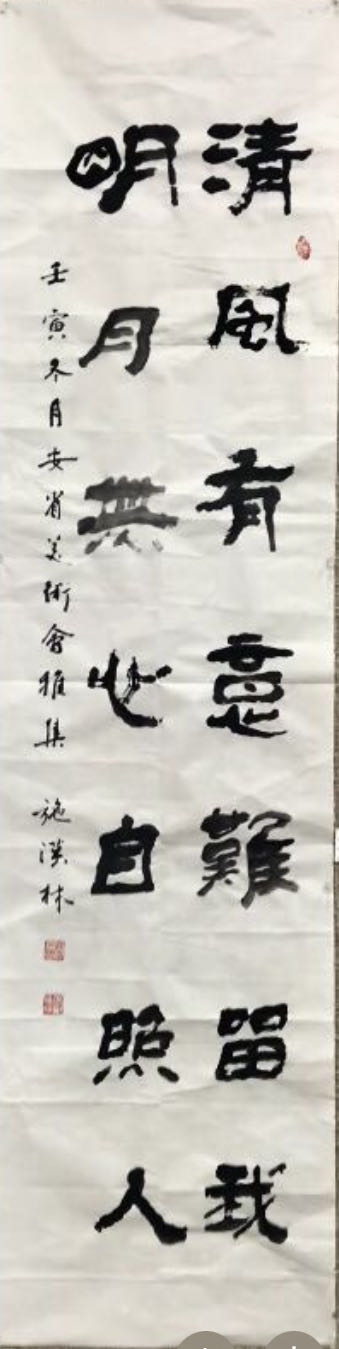 清風有意難留我
明月無心自照人
壬寅冬月安省美術會雅集 施漢林